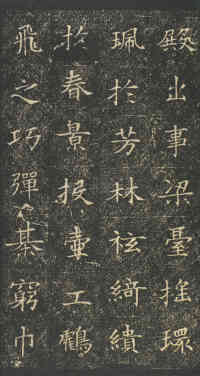 殿出事梁臺搖環
珮於芳林袨綺繢
於春景投壺工鶴
飛之巧彈棊窮巾